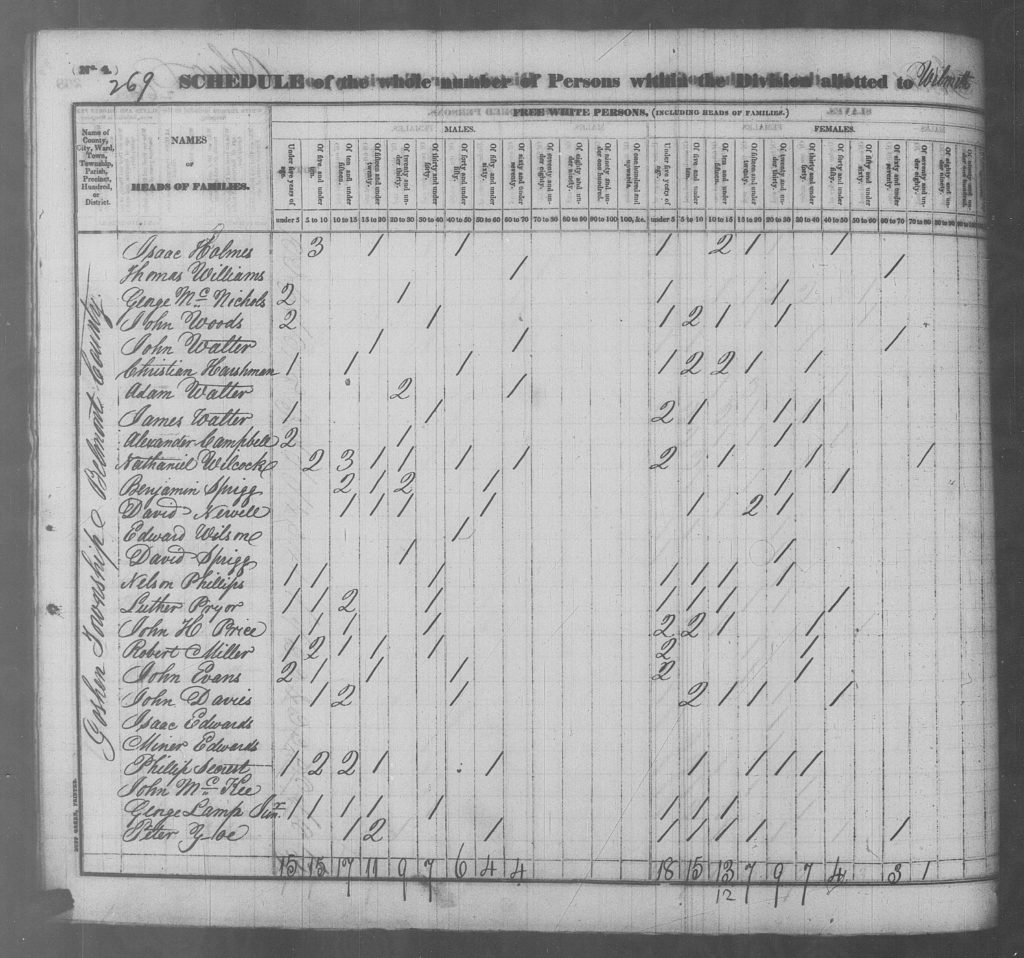 (No. 4.)
269
SCHEDULE of the whole number of Persons within the Division allotted to
FREE WHITE PERSONS, (INCLUDING HEADS OF FAMILIES.)
MALES. FEMALES.
Name of County, City, Ward, Town, Township, Parish, Precinct, Hundred, or District.
NAMES
OF
HEADS OF FAMILIES.
under 5 5 to 10 10 to 15 15 to 20 20 to 30 30 to 40 40 to 50 50 to 60 60 to 70 70 to 80 80 to 90 90 to 100 100, &c. under 5 5 to 10 10 to 15 15 to 20 20 to 30 30 to 40 40 to 50 50 to 60 60 to 70 70 to 80 80 to 90
Goshen Township Belmont County
Isaac Holmes 3 1 1 1 2 1 1
Thomas Williams 1 1
George Mc Nichols 2 1 1 1
John Woods 2 1 1 2 1 1
John Walter 1 1 1
Christian Harshman 1 1 1 1 2 2 1 1
Adam Walter 2 1
James Walter 1 1 2 1 1 1
Alexander Campbell 2 1 1
Nathaniel Wilcocke 2 3 1 1 1 1 2 1 1 1
Benjamin Sprigg 2 1 2 1 1 1
David Newell 1 1 1 1 1 2 1
Edward Wilson 1
David Sprigg 1 1
Nelson Phillips 1 1 1 1 1 1 1
Luther Pryor 1 1 2 1 1 1 1 1
John H Price 1 1 1 2 2 1 1
Robert Miller 1 2 1 1 1 2 1
John Evans 2 1 1 1 2 1
John Davies 1 2 1 2 1 1 1
Isaac Edwards
Miner Edwards
Phillip Secrest 1 2 2 1 1 1 1 1 1
John Mc Kee
George Lamp 1 1 1 1 1 1 1 1
Peter 1 2 1 1 1 1 1 1
15 15 17 11 9 7 6 4 4 18 15 13 7 9 7 4 3 1
12
DUFF GREEN, PRINTER.